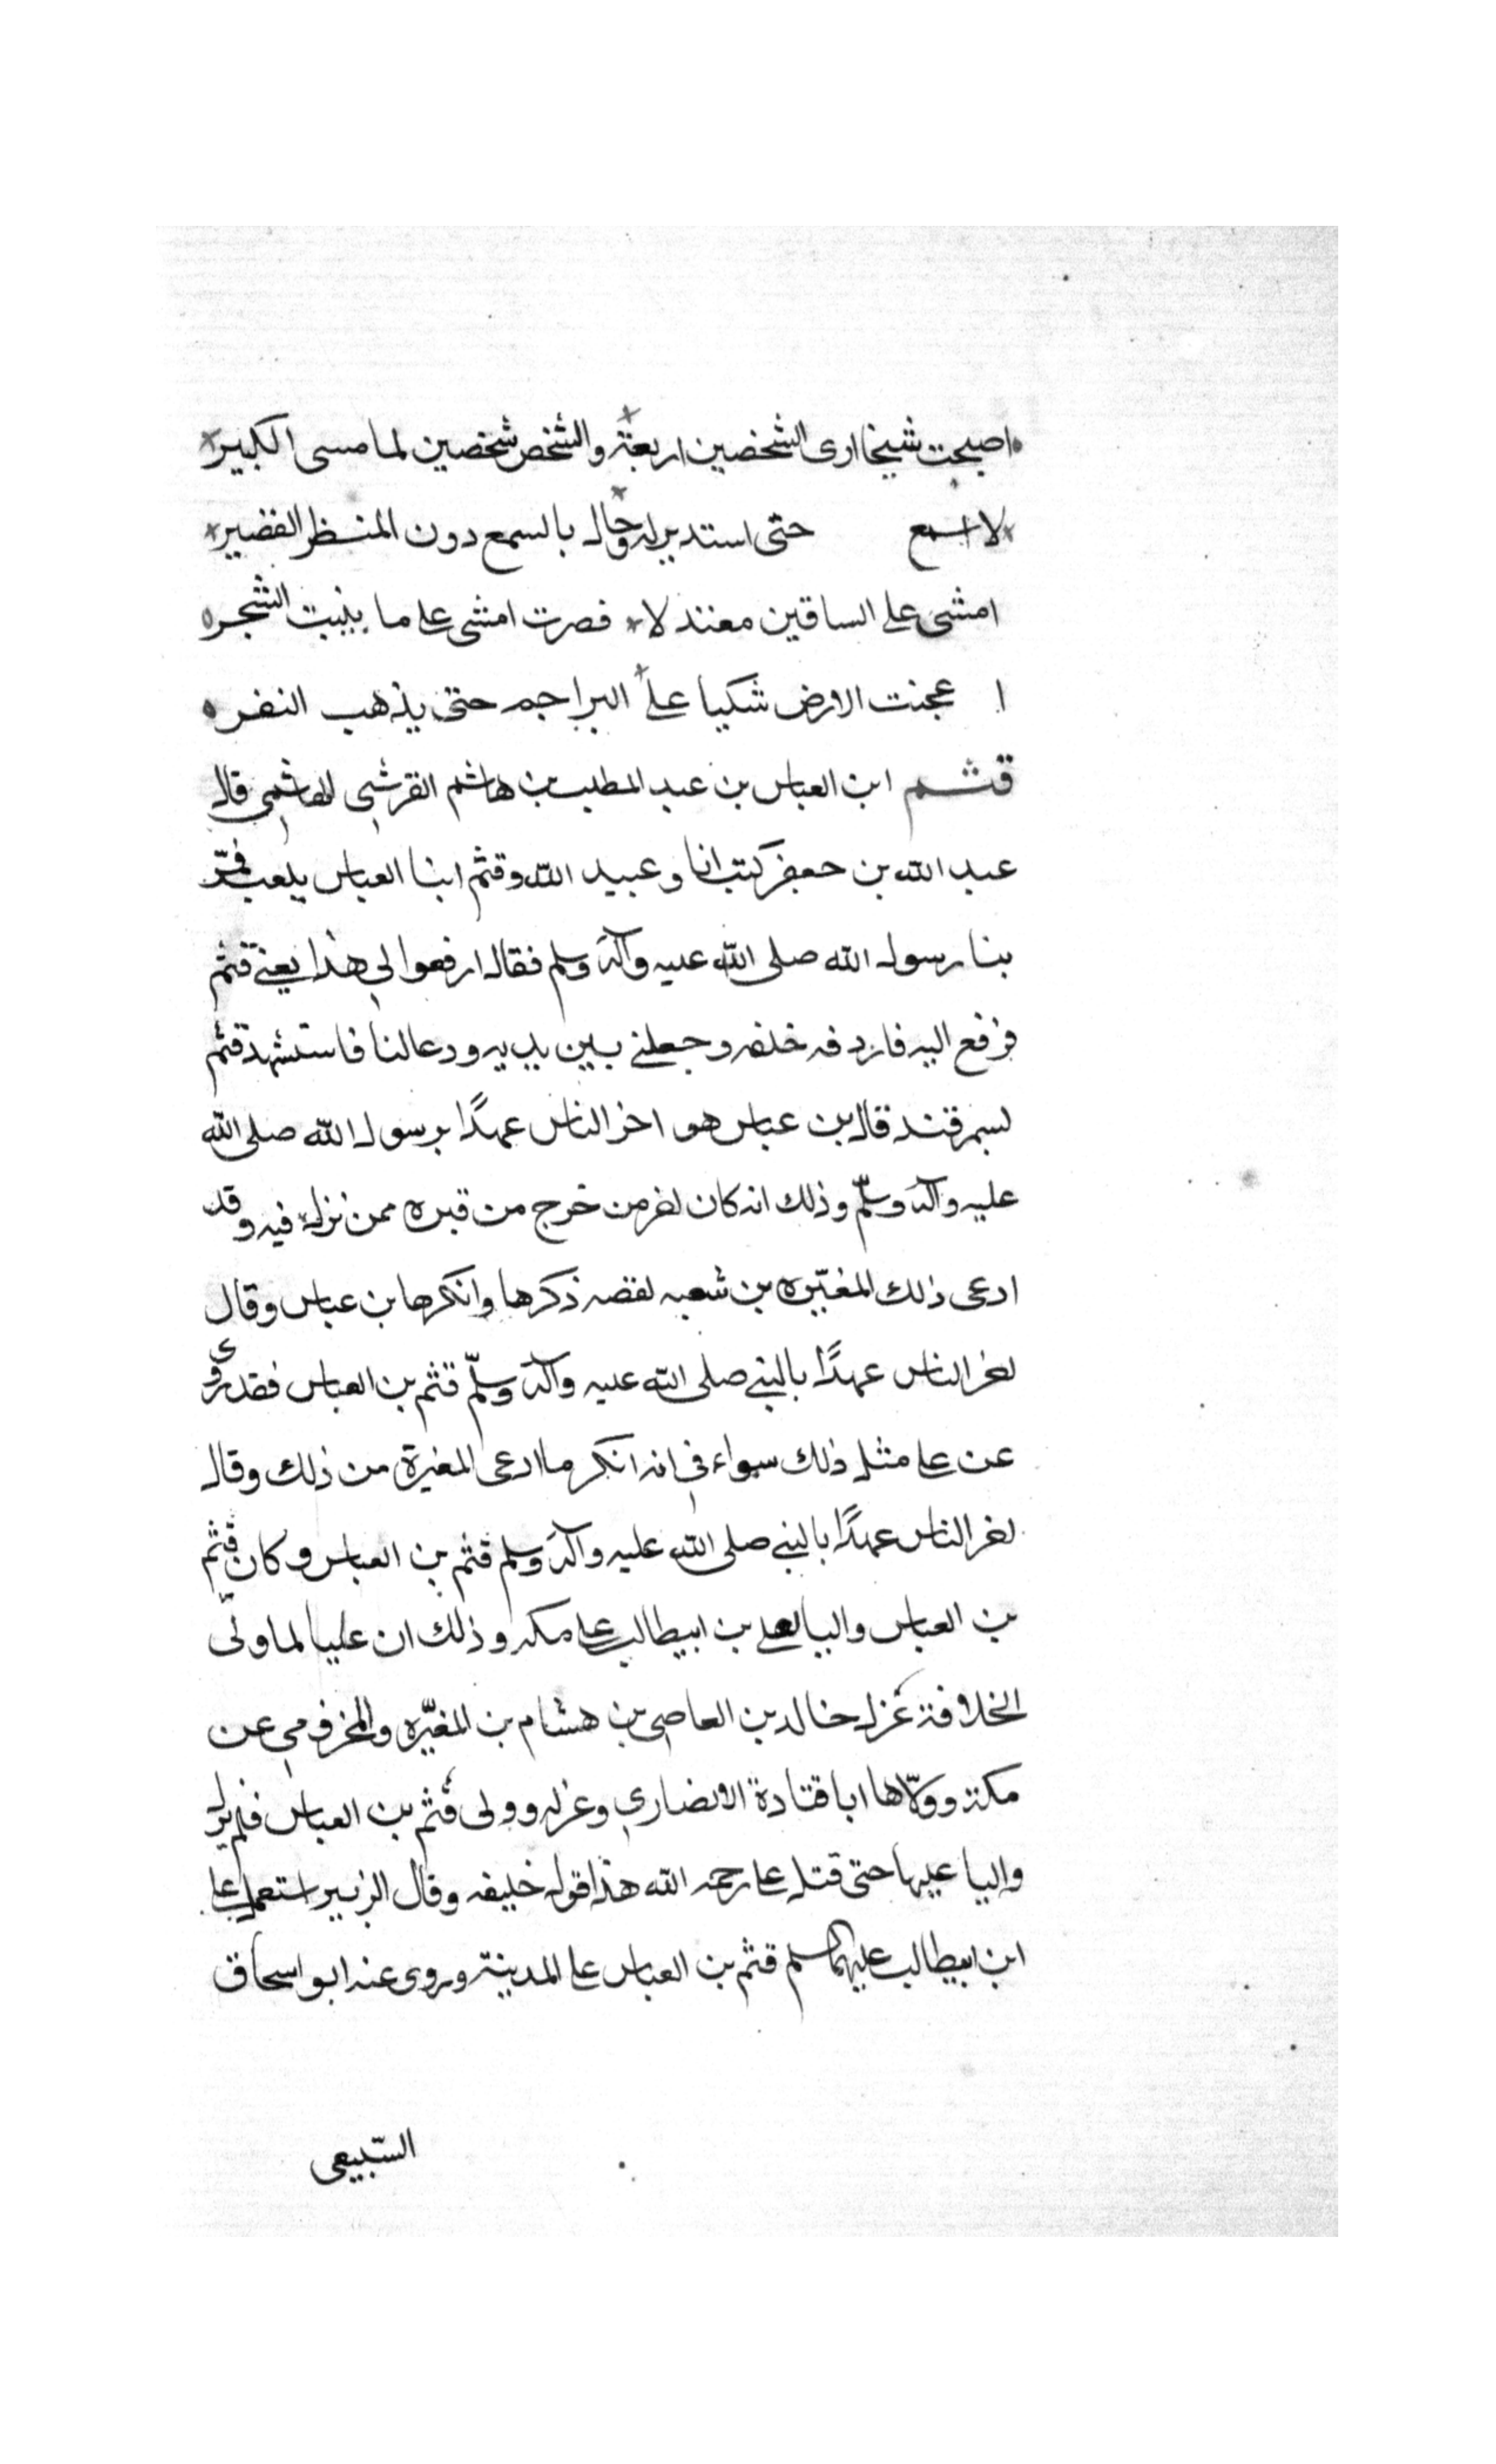 اصبحت شيخا ارى الشخصين اربعة والشخص شخصين لما مسى الكبير
لا اسمع حتى استدير له وحال بالسمع دون المنظر القصير
امشى على الساقين معتدلا فصرت امشى على ما ينبت الشجره
عجنت الارض شكيا على البراجم حتى يذهب النفره
قثم ابن العباس بن عبد المطلب بن هاشم القرشي الهاشمي قال
عبد الله بن جعفر كنت انا وعبيد الله وقثم ابنا العباس يلعب فمرّ
بنا رسول الله صلى الله عليه وآله وسلم فقال ارفعوا لي هذا يعني قثم
فرفع اليه فاردفه خلفه وجعلني بين يديه ودعا لنا فاستشهد قثم
بسمرقند قال بن عباس هو اخر الناس عهدًا برسول الله صلى الله
عليه وآله وسلّم وذلك انه كان اخر من خرج من قبره ممن نزل فيه وقد
ادعى ذلك المغيّره بن شعبه لقصه ذكرها وانكرها بن عباس وقال
اخر الناس عهدًا بالنبي صلى الله عليه وآله وسلّم قثم بن العباس فقد روى
عن على مثل ذلك سواء في انه انكر ما ادعى المغيرة من ذلك وقال
اخر الناس عهدًا بالنبي صلى الله عليه وآله وسلم قثم بن العباس وكان قثم
بن العباس واليا لعلي بن ابيطالب على مكه وذلك ان عليا لما ولّى
الخلافة عزل خالد بن العاصي بن هشام بن المغيّره والمخزومي عن
مكة وولّاها ابا قتادة الانصاري وعزله وولى قثم بن العباس فلم يزل
واليا عليها حتى قتل على رحمه الله هذا قول خليفه وقال الزبير استعمل على
ابن ابيطالب عليهما السلم قثم بن العباس على المدينة وروى عنه ابو اسحاق
السّبيعى